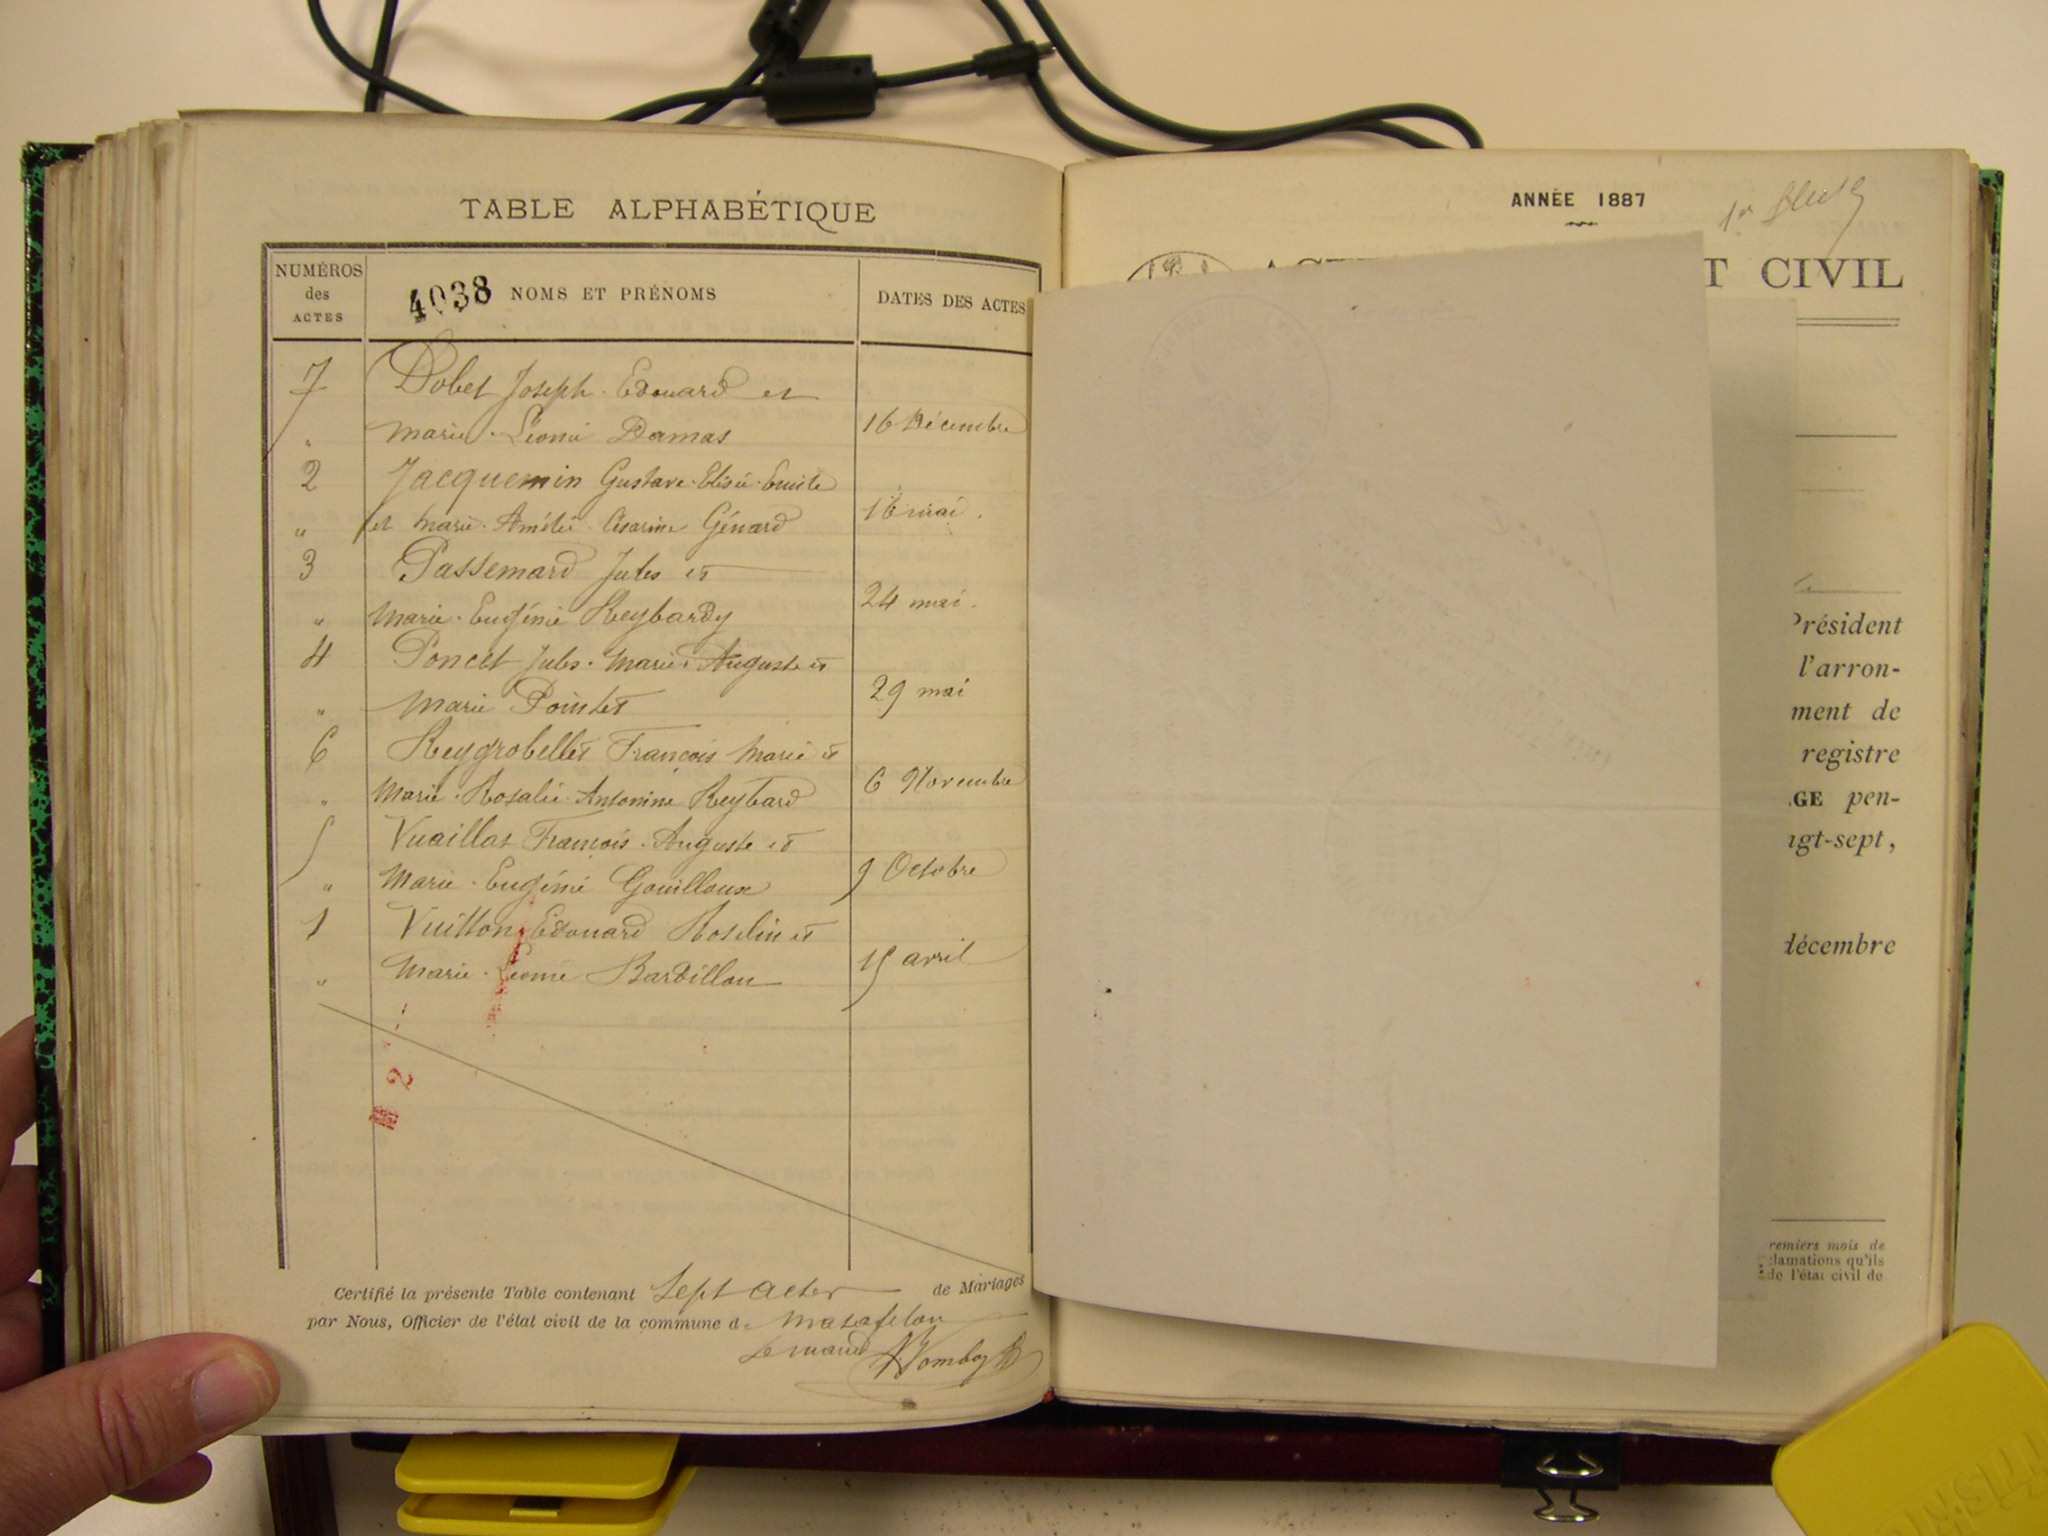 TABLE ALPHABÉTIQUE
NUMÉROS
des
ACTES
4038 NOMS ET PRÉNOMS
DATES DES ACTES
7 Dobet Joseph-Edouard et
" Marie-Léonie Damas 16 Décembre
2 Jacquemin Gustave-Elisée-Emile
" et Marie-Amélie-Césarine Génard 16 mai.
3 Passemard Jules et
" Marie-Eugénie Reybardy 24 mai.
4 Poncet Jules-Marie-Auguste et
" Marie Pointet 29 mai
6 Reygrobellet François Marie et
" Marie-Rosalie-Antonine Reybard 6 Novembre
5 Vuaillat François-Auguste et
" Marie-Eugénie Gouilloux 9 Octobre
1 Vuitton Edouard Roselin et
" Marie-Léonie Bardillon 15 avril
2
Certifié la présente Table contenant Sept actes de Mariages
par Nous, Officier de l'état civil de la commune d Matafelon
ANNÉE 1887
T CIVIL
Président
l'arron-
ment de
registre
GE pen-
ngt-sept,
décembre
remiers mois de
clamations qu'ils
de l'état civil de